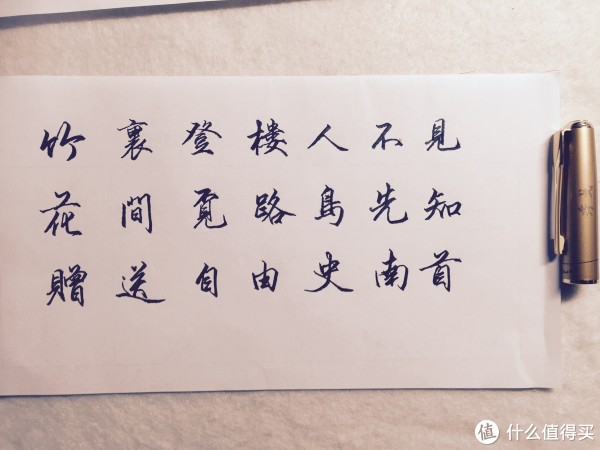 竹裏登楼人不見
花間覓路鳥先知
贈送自由史南首
值 什么值得买